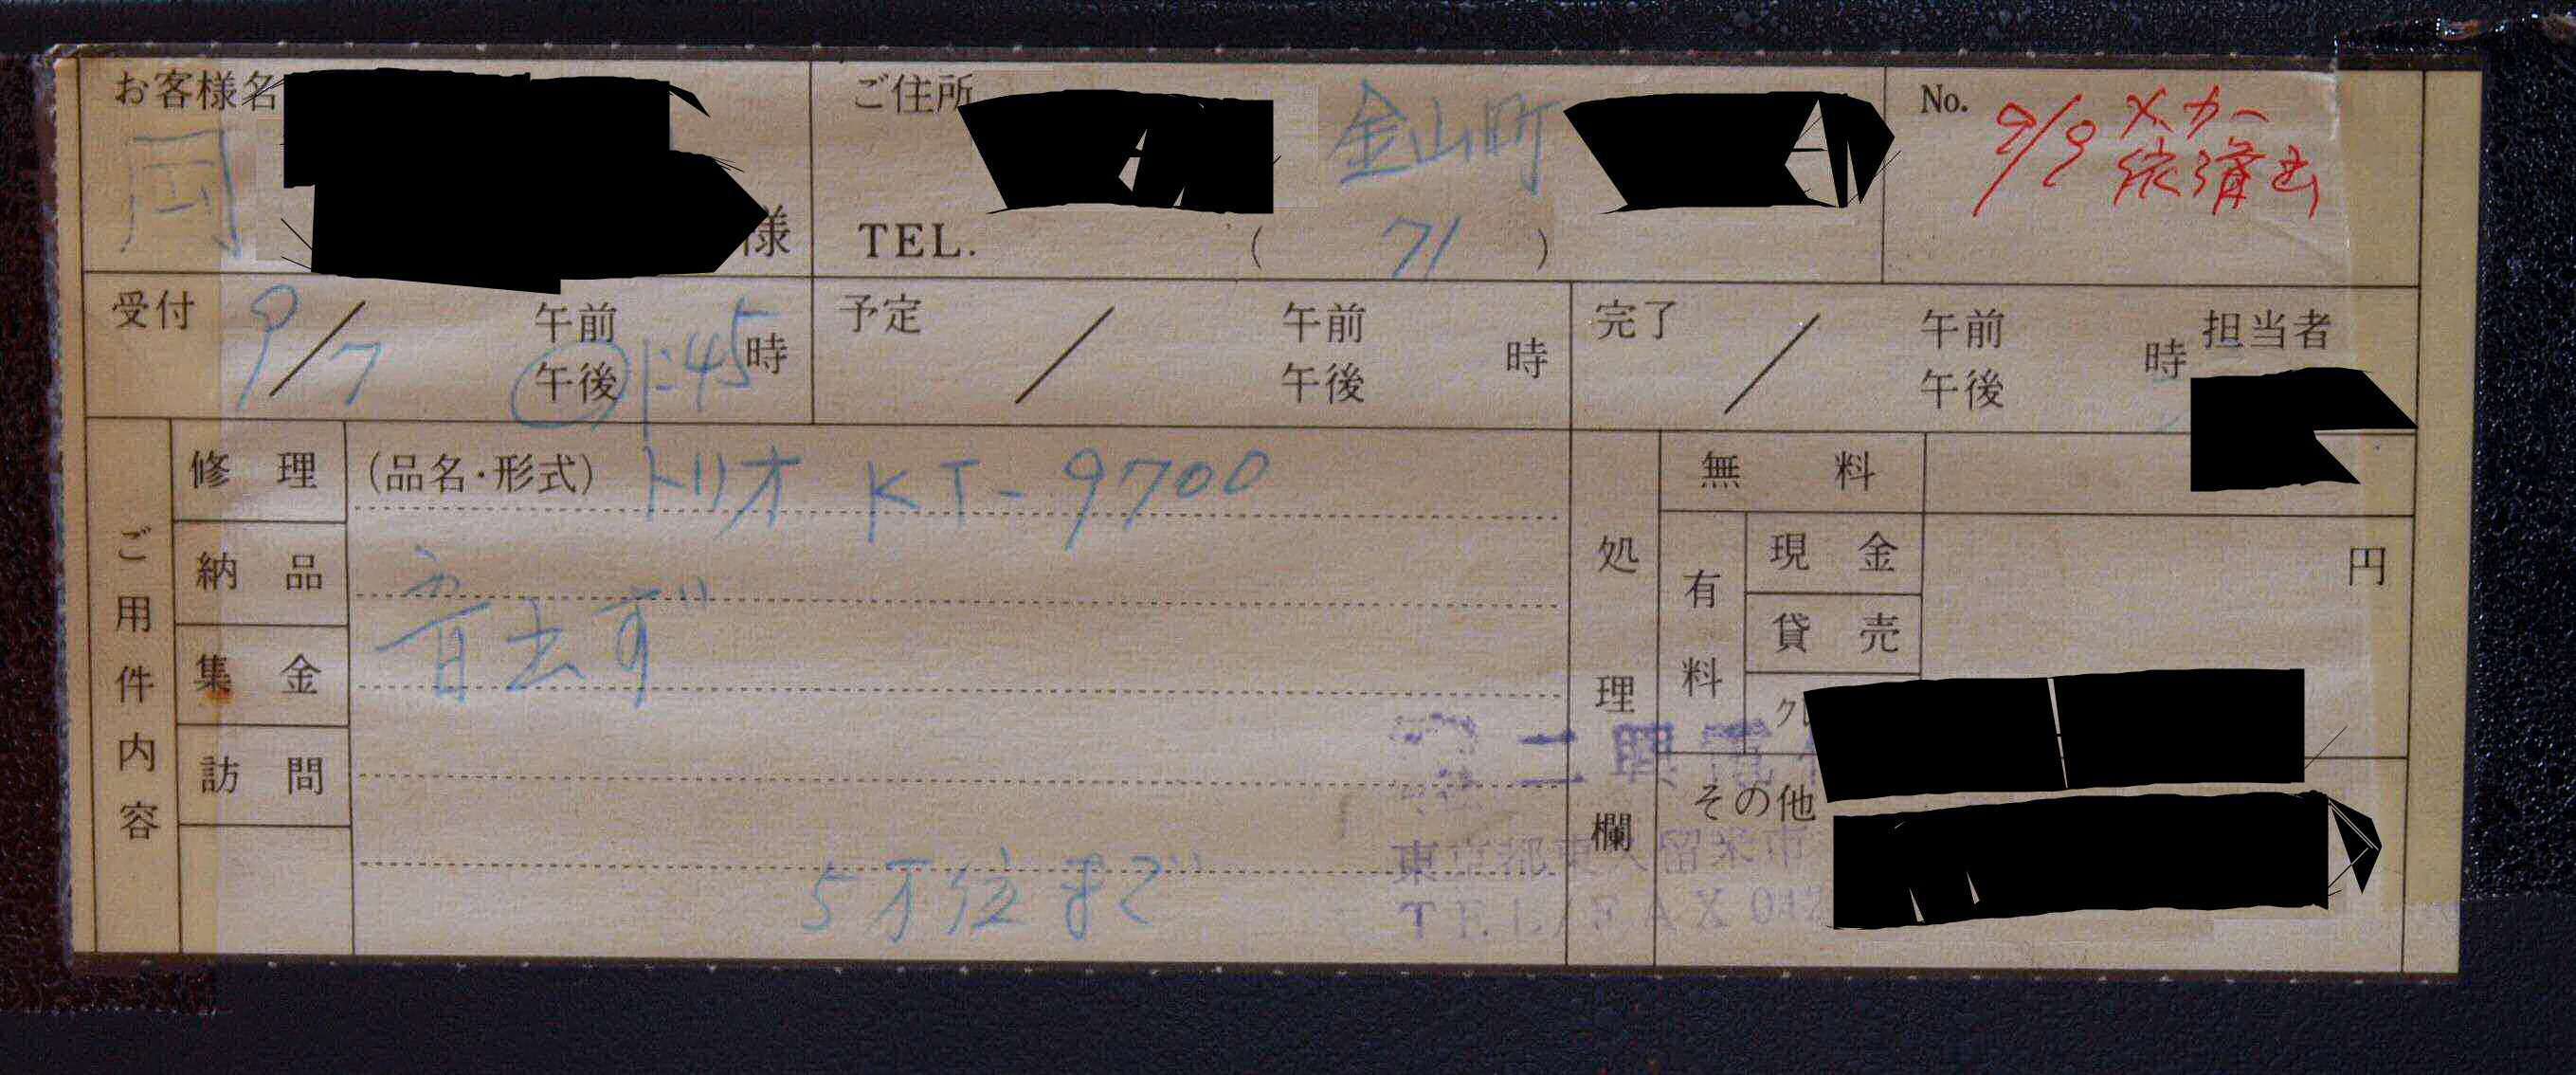 お客様名
岡
様
ご住所
金山町
TEL. ( 71 )
No. 9/9 メーカー
依済
受付 9/7 午前 午後 1:45時
予定 / 午前 午後 時
完了 / 午前 午後 時
担当者
ご用件内容
修理
納品
集金
訪問
(品名・形式) トリオ KT-9700
音出ず
5万位まで
処理欄
無料
有料
現金
円
貸売
ク
その他
二興電
東京都東久留米市
TEL/FAX 042